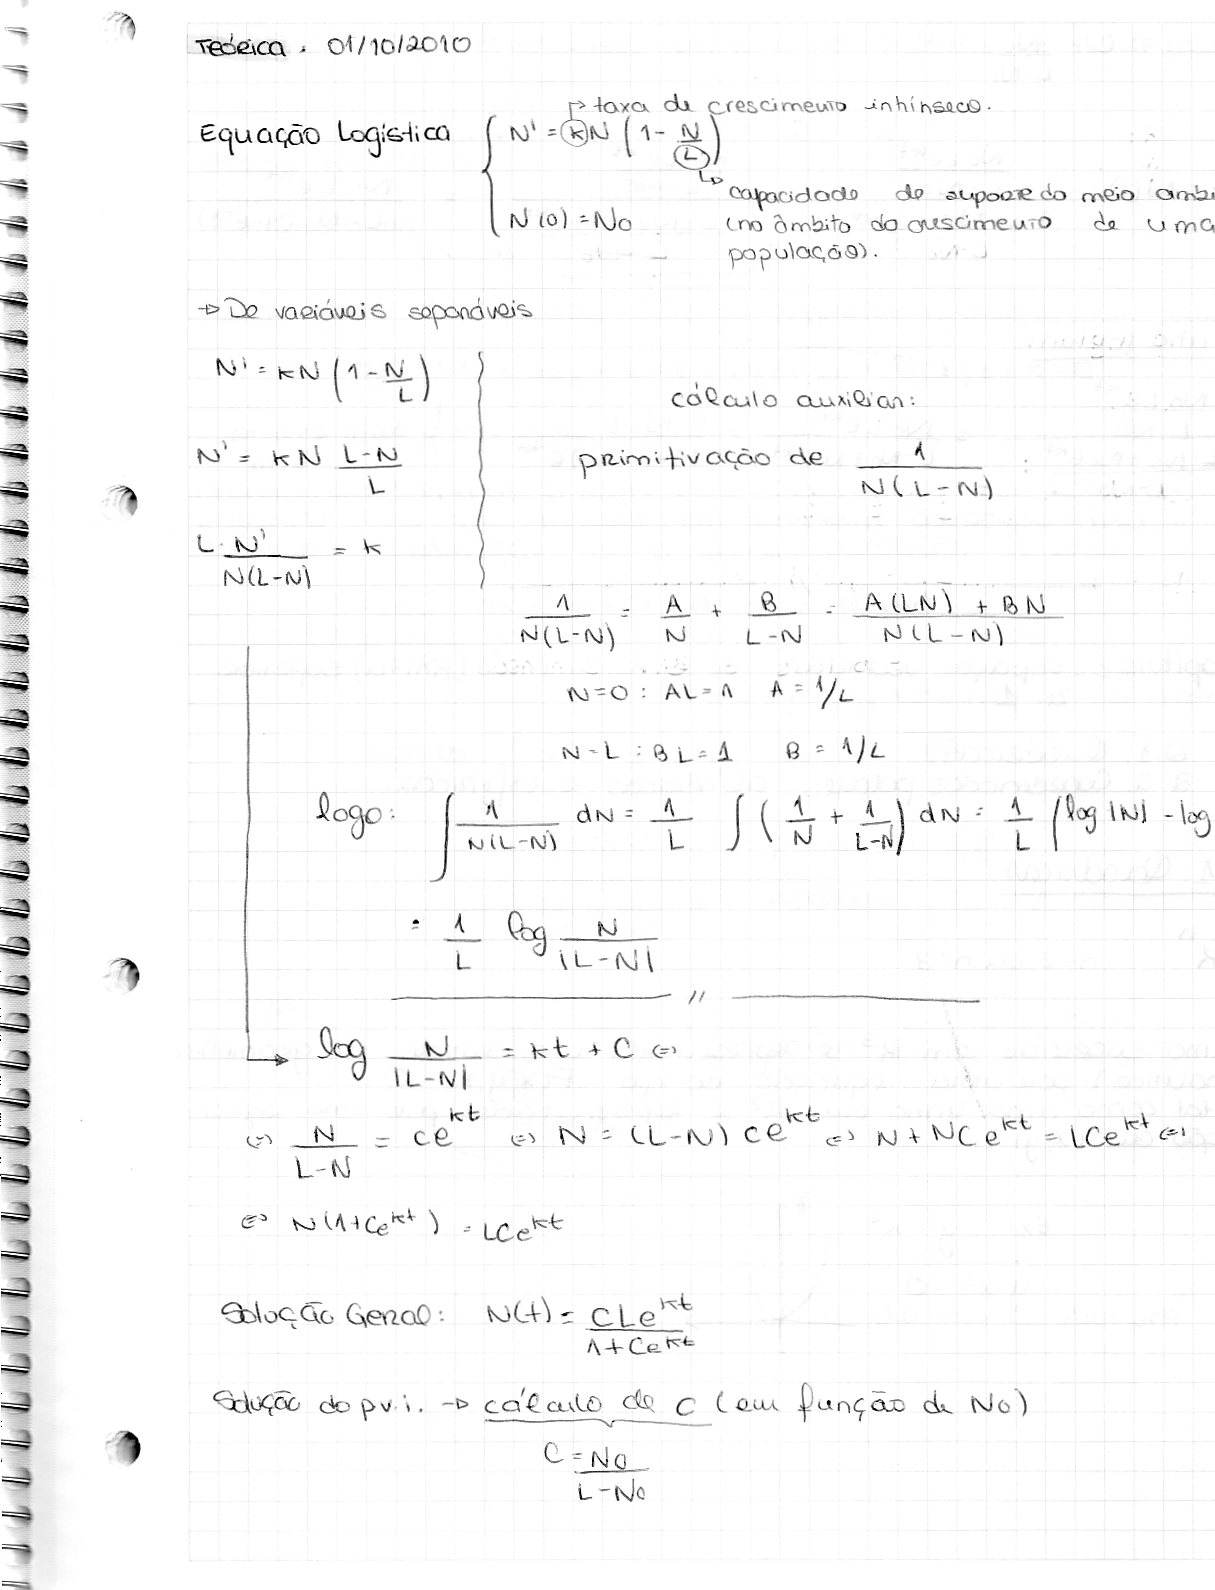 Teórica . 01/10/2010
↱ taxa de crescimento intrínseco.
Equação Logística { N' = kN (1 - N/L)
↳ capacidade de suporte do meio ambi
N(0) = N0 (no âmbito do crescimento de uma
população).
→ De variáveis separáveis
N' = kN (1 - N/L)
cálculo auxiliar:
N' = kN (L-N)/L
primitivação de 1/(N(L-N))
L·N'/(N(L-N)) = k
1/(N(L-N)) = A/N + B/(L-N) = (A(LN) + BN)/(N(L-N))
N=0 : AL=1 A = 1/L
N-L : BL=1 B = 1/L
logo: ∫ 1/(N(L-N)) dN = 1/L ∫ (1/N + 1/(L-N)) dN = 1/L (log |N| - log
= 1/L log N/|L-N|
//
→ log N/|L-N| = kt + C ⇔
⇔ N/(L-N) = ce^kt ⇔ N = (L-N) ce^kt ⇔ N + NCe^kt = LCe^kt ⇔
⇔ N(1+Ce^kt) = LCe^kt
Solução Geral: N(t) = CLe^kt/(1+Ce^kt)
Solução do p.v.i. → cálculo de C (em função de N0)
C = N0/(L-N0)